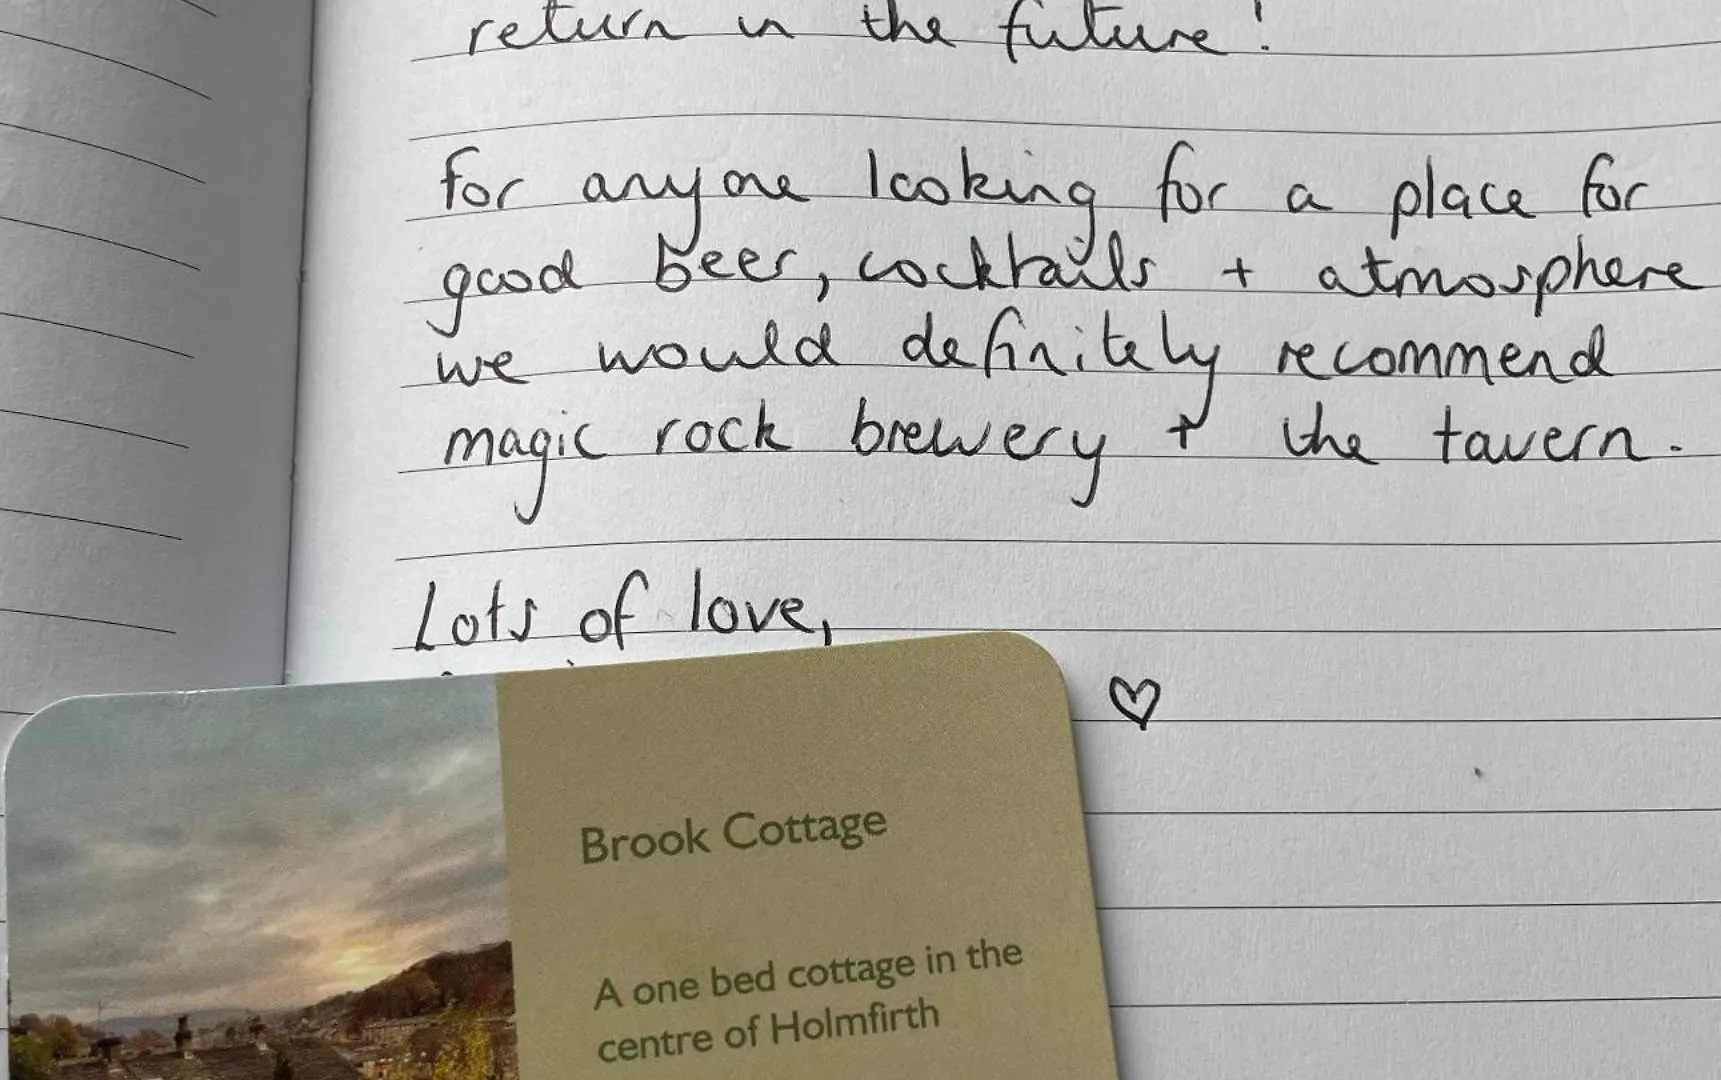 return in the future!
for anyone looking for a place for
good beer, cocktails + atmosphere
we would definitely recommend
magic rock brewery + the tavern.
Lots of love,
♡
Brook Cottage
A one bed cottage in the
centre of Holmfirth